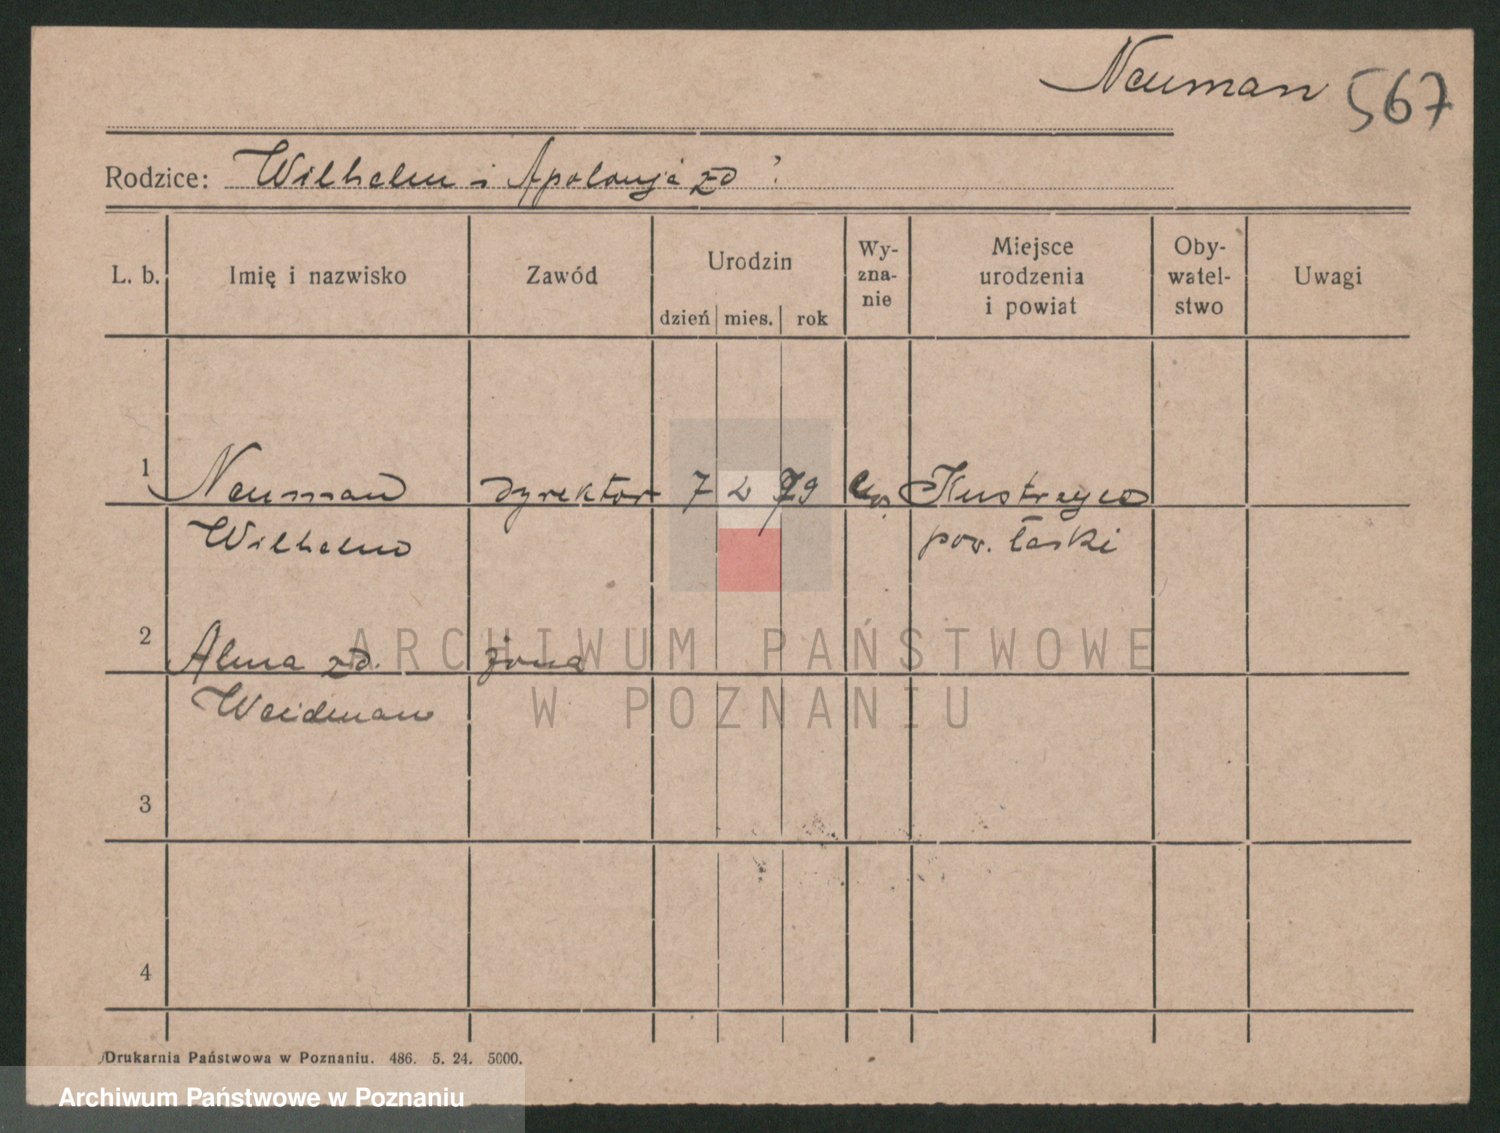 Neuman 567
Rodzice: Wilhelm i Apolonja zd ?
L. b. Imię i nazwisko Zawód Urodzin Wy- Miejsce Oby- Uwagi
zna- urodzenia watel-
nie i powiat stwo
dzień mies. rok
1 Neuman dyrektor 7 2 79
Wilhelm pow. łaski
2 Alma zd. żona
Weidman
3
4
Drukarnia Państwowa w Poznaniu. 486. 5. 24. 5000.
ARCHIWUM PAŃSTWOWE
W POZNANIU
Archiwum Państwowe w Poznaniu